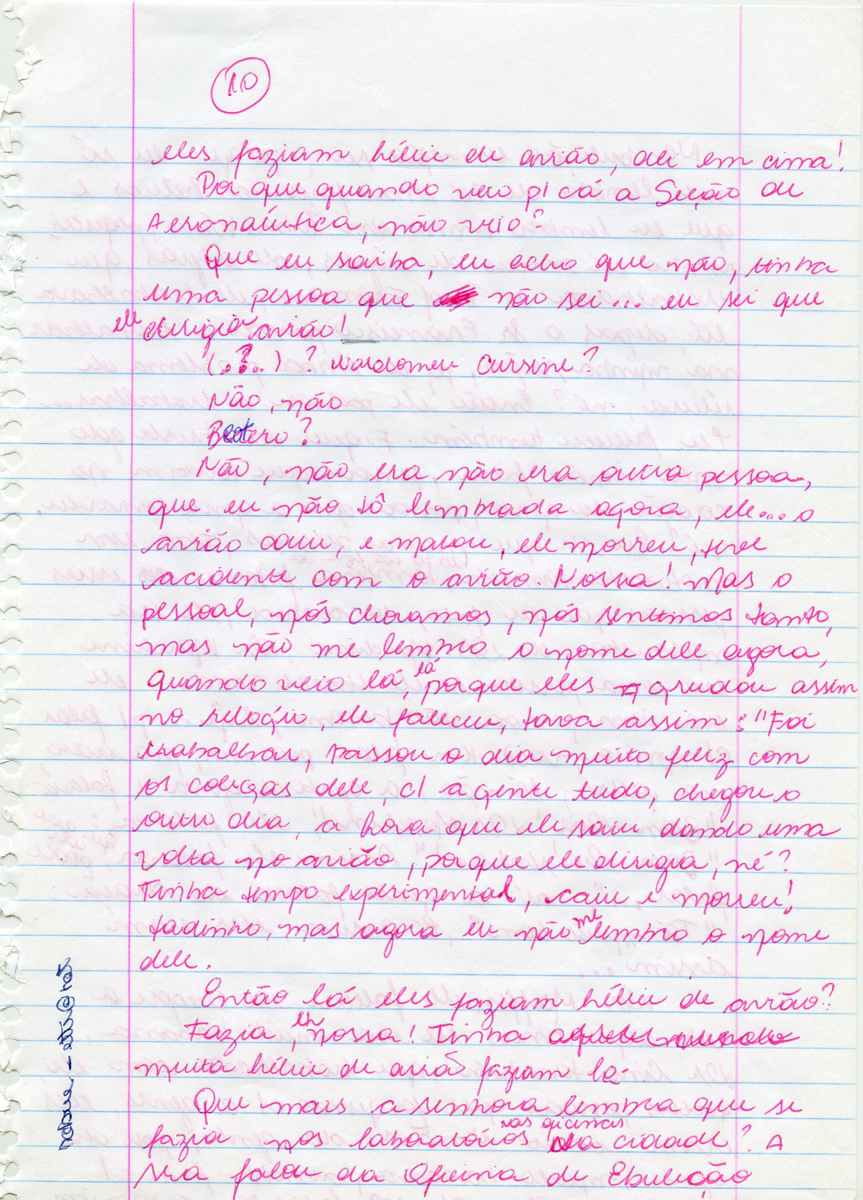 10
eles faziam hélice de avião, ali em cima!
Por que quando veio p/ cá a Seção de
Aeronáutica, não veio?
Que eu saiba, eu acho que não, tinha
uma pessoa que não sei... eu sei que
ele dirigia avião!
(..?..) ? Cursine?
Não, não
Botero?
Não, não era não era outra pessoa,
que eu não tô lembrada agora, ele... o
avião caiu, e matou, ele morreu, teve
acidente com o avião. Nossa! Mas o
pessoal, nós choramos, nós sentimos tanto,
mas não me lembro o nome dele agora,
quando veio lá, lá porque eles grudou assim
no relógio, ele faleceu, tava assim: "Foi
trabalhar, passou o dia muito feliz com
os colegas dele, c/ a gente tudo, chegou o
outro dia, a hora que ele saiu dando uma
volta no avião, porque ele dirigia, né?
Tinha tempo experimental, caiu e morreu!
tadinho, mas agora eu não me lembro o nome
dele.
Então lá eles faziam hélice de avião?
Fazia, eh nossa! Tinha
muita hélice de avião faziam lá.
Que mais a senhora lembra que se
fazia nos laboratórios nas oficinas da cidade? A
Sra falou da Oficina de Ebulição